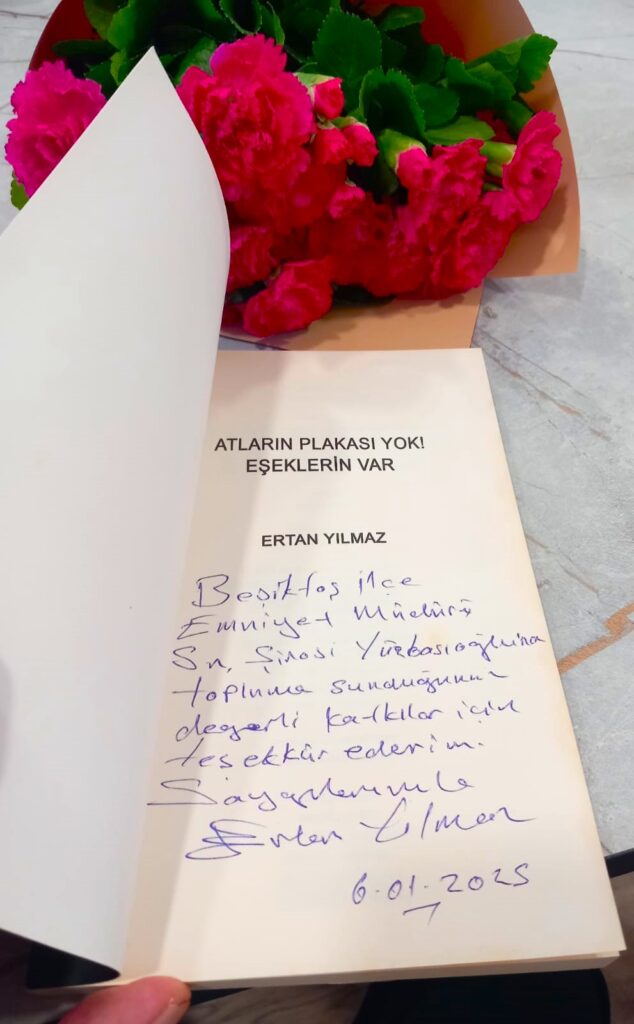 ATLARIN PLAKASI YOK!
EŞEKLERİN VAR
ERTAN YILMAZ
Beşiktaş ilçe
Emniyet Müdürü
Sn. Şinasi Yüzbaşıoğlu'na
topluma sunduğunuz
değerli katkılar için
teşekkür ederim.
Saygılarımla
Ertan Yılmaz
6.01.2025